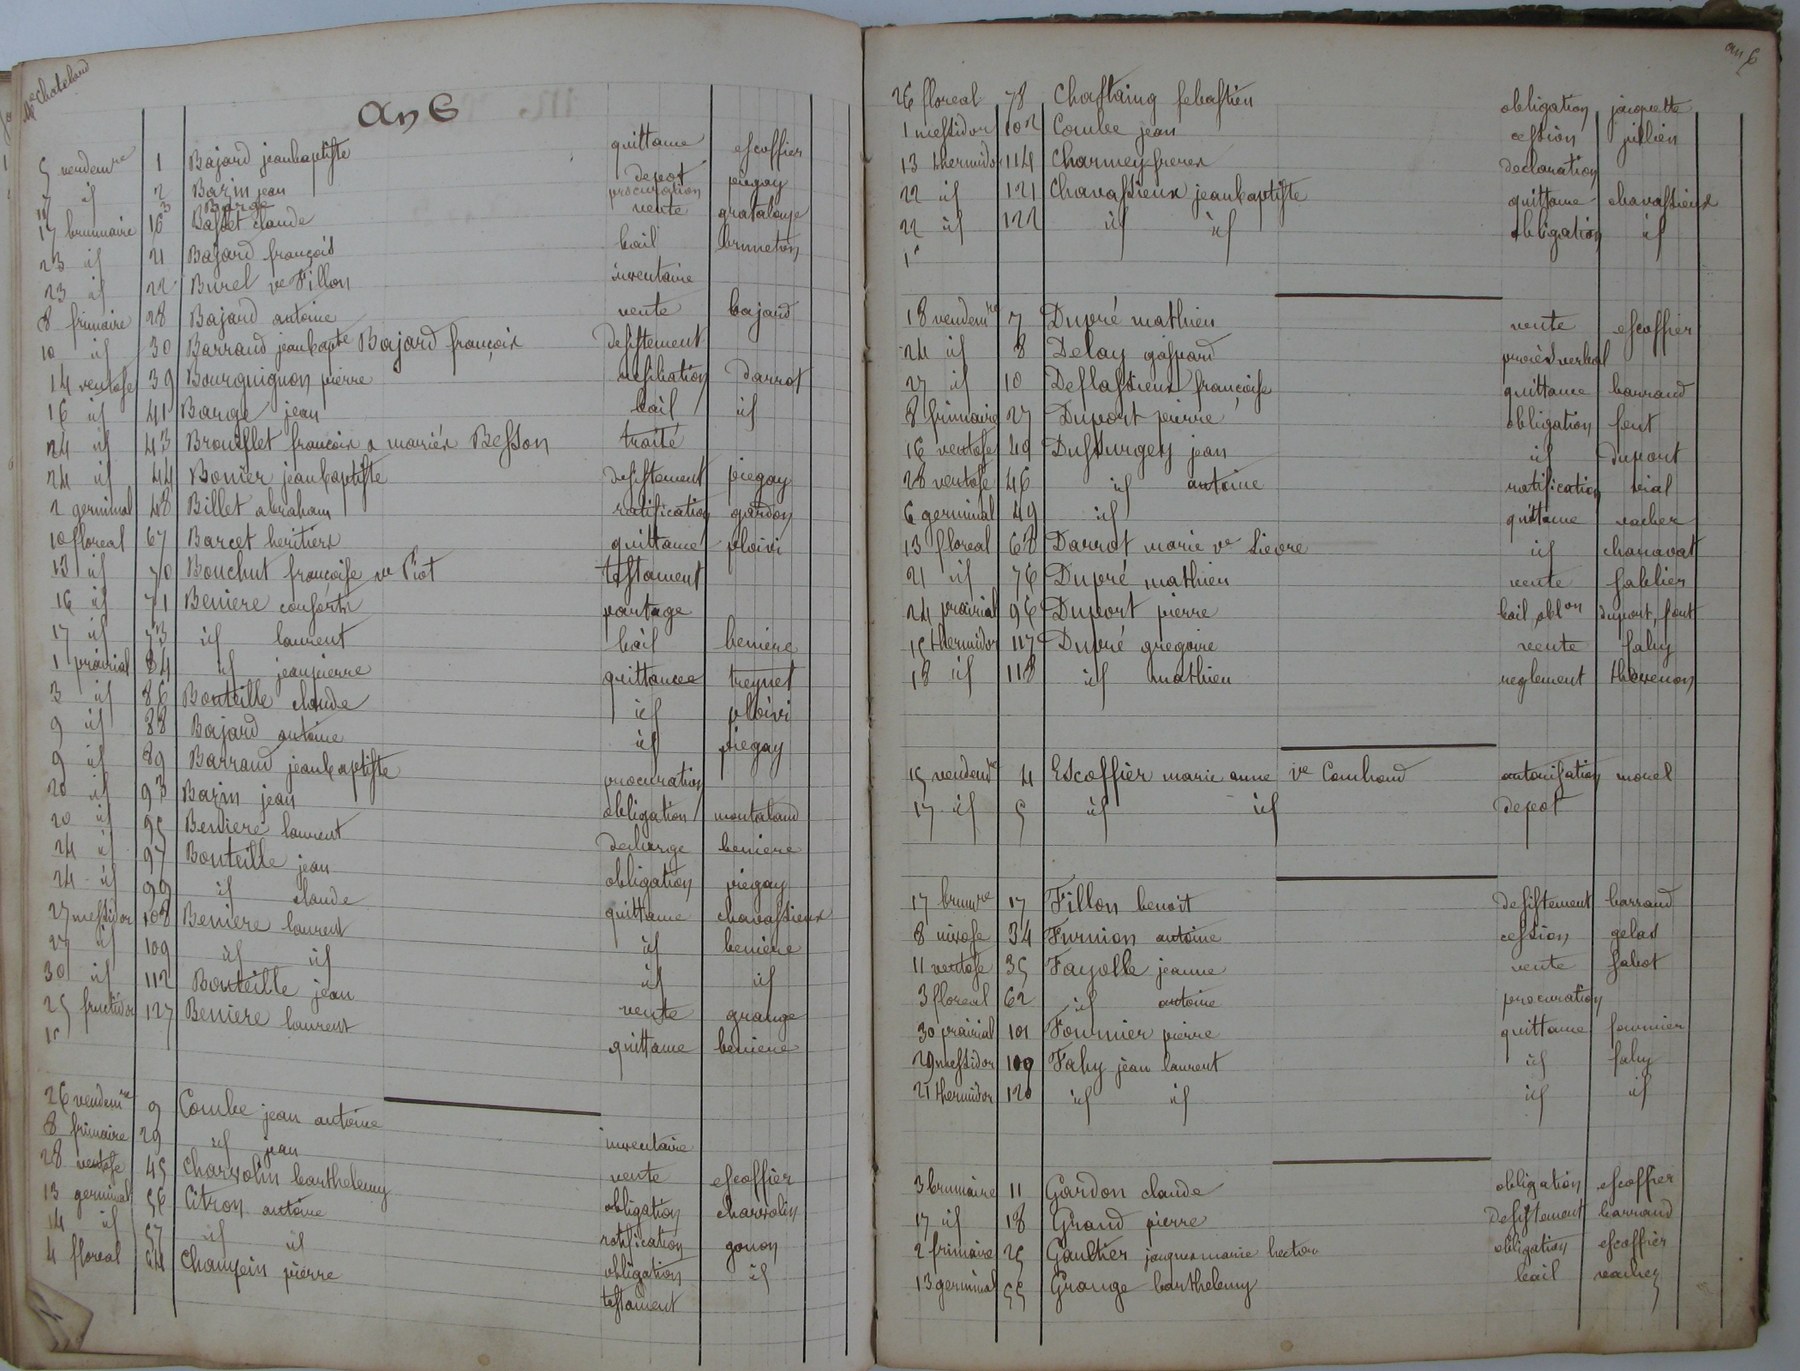 Me Chateland
An 6
5 vendemre 1 Bajard jeanbaptiste quittance escoffier
17 id 2 Bazin jean depot piegay
3 Barge procuration
17 brumaire 16 Basset claude vente grataloup
23 id 21 Bajard françois bail bruneton
23 id 22 Burel ve Fillon inventaire
8 frimaire 28 Bajard antoine vente bajard
10 id 30 Barraud jeanbapte Bajard françois desistement
14 ventose 39 Bourguignon pierre resiliation Darrot
16 id 41 Barge jean bail id
24 id 43 Brouillet françois & mariés Besson traité
24 id 44 Bonier jeanbaptiste desistement piegay
2 germinal 48 Billet abraham ratification gardon
10 floreal 67 Barcet heritiers quittance ploivi
13 id 70 Bouchut françoise ve Piot testament
16 id 71 Beniere consorts partage
17 id 73 id laurent bail beniere
1 prairial 84 id jeanpierre quittance treynet
3 id 86 Bouteille claude id ploivi
9 id 88 Bajard antoine id piegay
9 id 89 Barraud jeanbaptiste procuration
20 id 93 Bazin jean obligation montaland
20 id 95 Beniere laurent decharge beniere
24 id 97 Bouteille jean obligation piegay
24 id 99 id claude quittance chavassieux
27 messidor 108 Beniere laurent id beniere
27 id 109 id id id id
30 id 112 Bouteille jean vente grange
25 fructidor 127 Beniere laurent quittance beniere
26 vendemre 9 Combe jean antoine inventaire
8 frimaire 29 id jean vente escoffier
28 ventose 45 Charvolin barthelemy obligation charvolin
13 germinal 56 Citron antoine ratification gonon
14 id 57 id id obligation id
4 floreal 64 Champin pierre testament
an 6
26 floreal 78 Chastaing sebastien obligation jacquette
1 messidor 102 Combe jean cession jullien
13 thermidor 114 Charmey freres declaration
22 id 121 Chavassieux jeanbaptiste quittance chavassieux
22 id 122 id id obligation id
18 vendemre 7 Dupré mathieu vente escoffier
24 id 8 Delay gaspard procès verbal
27 id 10 Deflassieux françoise quittance barraud
8 frimaire 27 Duport pierre obligation font
16 ventose 40 Dufourgey jean id dupont
28 ventose 46 id antoine ratification vial
6 germinal 49 id quittance vacher
13 floreal 68 Darrot marie ve Lievre id chanavat
21 id 76 Dupré mathieu vente sablier
24 prairial 96 Duport pierre bail, oblon duport, font
15 thermidor 117 Dupré gregoire vente fahy
18 id 118 id mathieu reglement thevenon
15 vendemre 4 Escoffier marie anne ve Combaud autorisation morel
17 id 5 id id depot
17 brumre 17 Fillon benoit desistement barraud
8 nivose 34 Furnion antoine cession gelas
11 ventose 35 Fayolle jeanne vente fabot
3 floreal 62 id antoine procuration
30 prairial 101 Fournier pierre quittance fournier
29 messidor 109 Fahy jean laurent id fahy
21 thermidor 120 id id id id
3 brumaire 11 Gardon claude obligation escoffier
17 id 18 Grand pierre desistement barraud
2 frimaire 25 Gaultier jacques marie hector obligation escoffier
13 germinal 55 Grange barthelemy bail vacher